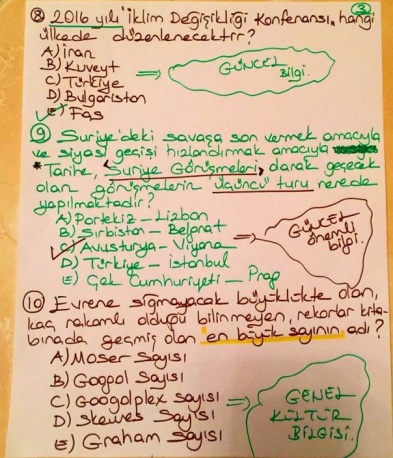 3
⑧ 2016 yılı "İklim Değişikliği Konferansı" hangi
ülkede düzenlenecektir?
A) İran
B) Kuveyt
C) Türkiye
D) Bulgaristan
E) Fas
GÜNCEL
Bilgi.
⑨ Suriye'deki savaşa son vermek amacıyla
ve siyasi geçişi hızlandırmak amacıyla
* Tarihe, "Suriye Görüşmeleri" olarak geçecek
olan görüşmelerin üçüncü turu nerede
yapılmaktadır?
A) Portekiz – Lizbon
B) Sırbistan – Belgrat
C) Avusturya – Viyana
D) Türkiye – İstanbul
E) Çek Cumhuriyeti – Prag
GÜNCEL
önemli
bilgi.
⑩ Evrene sığmayacak büyüklükte olan,
kaç rakamlı olduğu bilinmeyen, rekorlar kita-
bında geçmiş olan en büyük sayının adı?
A) Moser Sayısı
B) Googol Sayısı
C) Googolplex Sayısı
D) Skewes Sayısı
E) Graham Sayısı
GENEL
KÜLTÜR
BİLGİSİ.